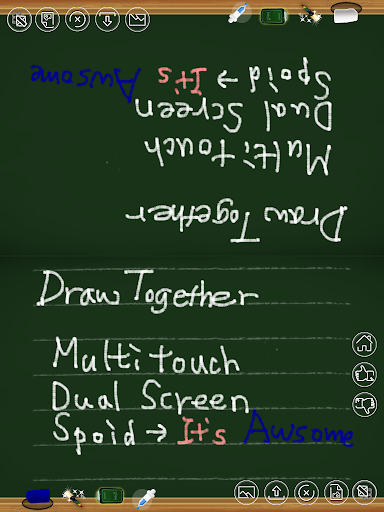 Spoid → It's Awsome
Dual Screen
Multi touch
Draw Together
Draw Together
Multi touch
Dual Screen
Spoid → It's Awsome